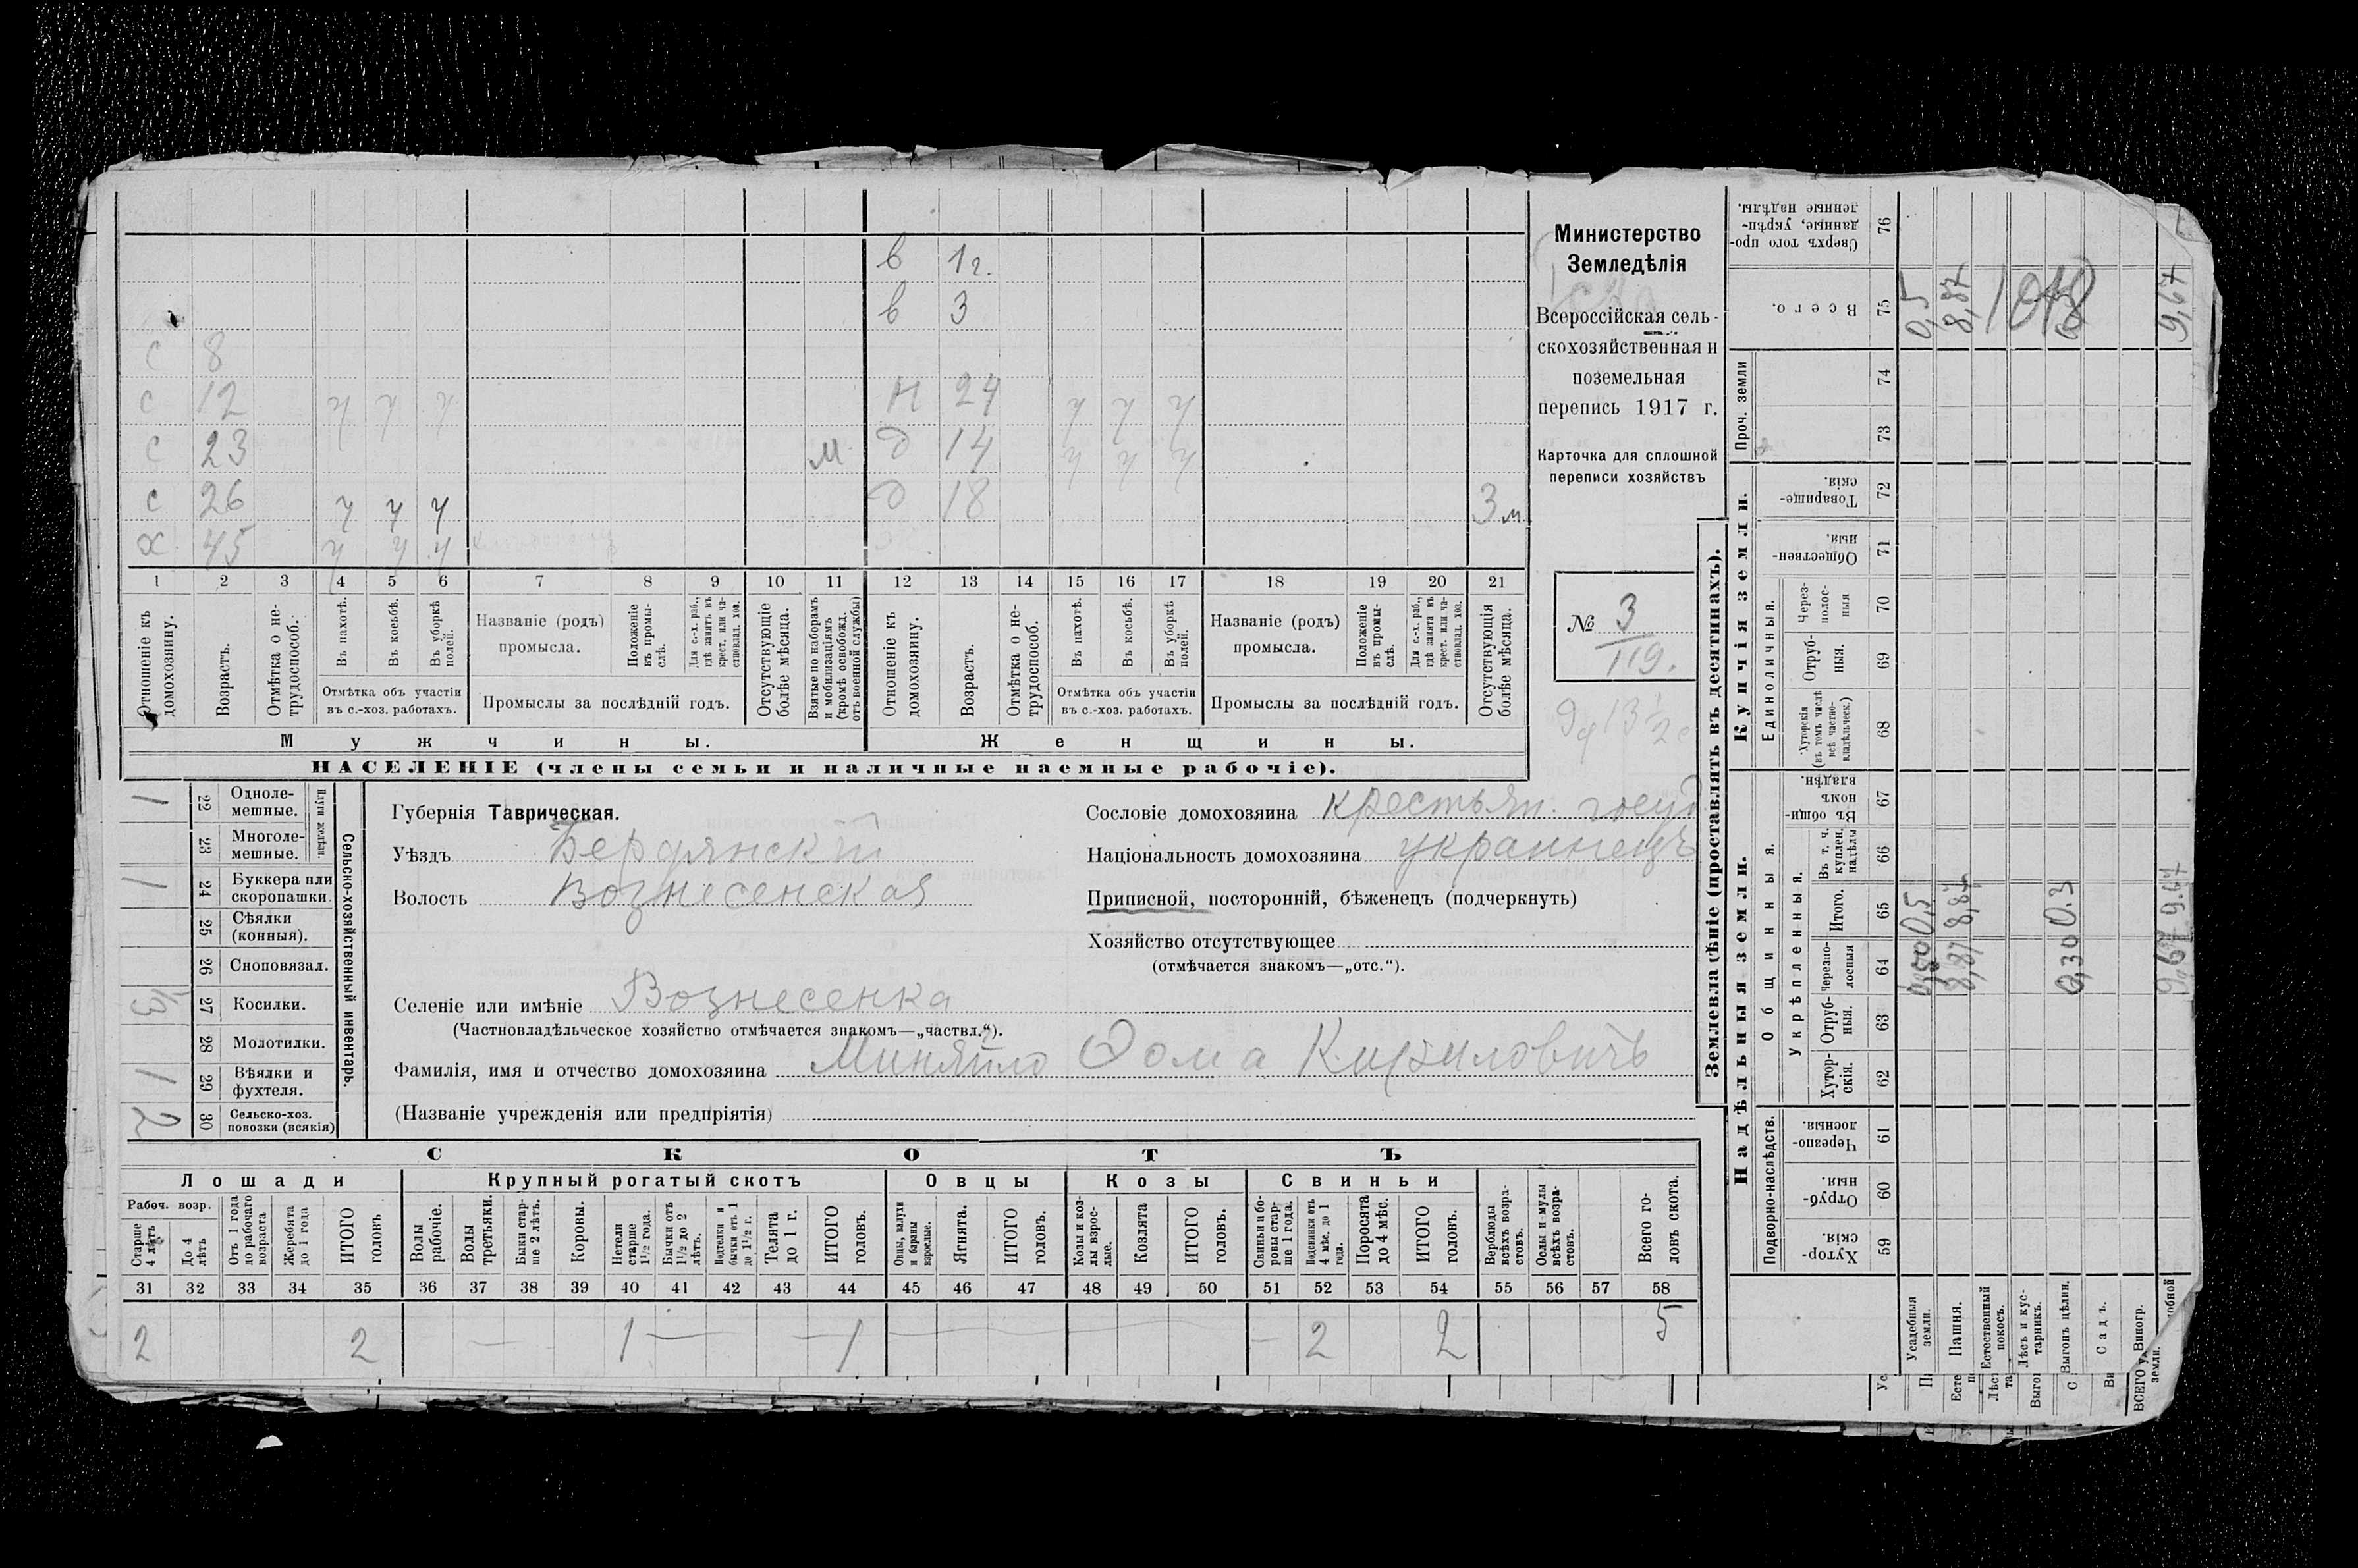 в 1 г.
в 3
с 8
с 12 ч ч ч Н 24 ч ч ч
с 23 м д 14 ч ч ч
с 26 ч ч ч д 18 3 м
х 45 ч ч ч
1 2 3 4 5 6 7 8 9 10 11 12 13 14 15 16 17 18 19 20 21
Отношеніе къ домохозяину.
Возрастъ.
Отмѣтка о нетрудоспособ.
Въ пахотѣ.
Въ косьбѣ.
Въ уборкѣ полей.
Отмѣтка объ участіи
въ с.-хоз. работахъ.
Названіе (родъ)
промысла.
Положеніе въ промыслѣ.
Для с.-х. раб., гдѣ занятъ въ крест. или частновлад. хоз.
Промыслы за послѣдній годъ.
Отсутствующіе болѣе мѣсяца.
Взятые по наборамъ и мобилизаціямъ (кромѣ освобожд. отъ военной службы)
Отношеніе къ домохозяину.
Возрастъ.
Отмѣтка о нетрудоспособ.
Въ пахотѣ.
Въ косьбѣ.
Въ уборкѣ полей.
Отмѣтка объ участіи
въ с.-хоз. работахъ.
Названіе (родъ)
промысла.
Положеніе въ промыслѣ.
Для с.-х. раб., гдѣ занята въ крест. или частновлад. хоз.
Промыслы за послѣдній годъ.
Отсутствующія болѣе мѣсяца.
Мужчины.
Женщины.
НАСЕЛЕНІЕ (члены семьи и наличные наемные рабочіе).
Министерство
Земледѣлія
Всероссійская сель-
скохозяйственная и
поземельная
перепись 1917 г.
Карточка для сплошной
переписи хозяйствъ
№ 3
119.
Сельско-хозяйственный инвентарь.
Плуги желѣзн.
1 22 Одноле-
мешные.
23 Многоле-
мешные.
1 24 Буккера или
скоропашки.
25 Сѣялки
(конныя).
26 Сноповязал.
1/3 27 Косилки.
28 Молотилки.
1 29 Вѣялки и
фухтеля.
2 30 Сельско-хоз.
повозки (всякія)
Губернія Таврическая.
Уѣздъ Бердянскій
Волость Вознесенская
Селеніе или имѣніе Вознесенка
(Частновладѣльческое хозяйство отмѣчается знакомъ—„частвл.“).
Фамилія, имя и отчество домохозяина Миняйло Фома Кириловичъ
(Названіе учрежденія или предпріятія)
Сословіе домохозяина крестьян. госуд
Національность домохозяина украинецъ
Приписной, посторонній, бѣженецъ (подчеркнуть)
Хозяйство отсутствующее
(отмѣчается знакомъ—„отс.“).
СКОТЪ
Лошади
Крупный рогатый скотъ
Овцы
Козы
Свиньи
Рабоч. возр.
Старше 4 лѣтъ
До 4 лѣтъ
Отъ 1 года до рабочаго возраста
Жеребята до 1 года
ИТОГО головъ
Волы рабочіе.
Волы третьяки.
Быки старше 2 лѣтъ.
Коровы.
Нетели старше 1 1/2 года.
Бычки отъ 1 1/2 до 2 лѣтъ.
Подтелки и бычки отъ 1 до 1 1/2 г.
Телята до 1 г.
ИТОГО головъ.
Овцы, валухи и бараны взрослые.
Ягнята.
ИТОГО головъ.
Козы и козлы взрослые.
Козлята
ИТОГО головъ.
Свиньи и боровы старше 1 года.
Подсвинки отъ 4 мѣс. до 1 года.
Поросята до 4 мѣс.
ИТОГО головъ.
Верблюды всѣхъ возрастовъ.
Ослы и мулы всѣхъ возрастовъ.
Всего головъ скота.
31 32 33 34 35 36 37 38 39 40 41 42 43 44 45 46 47 48 49 50 51 52 53 54 55 56 57 58
2 2 — 1 — — 1 — 2 2 5
Землевладѣніе (проставлять въ десятинахъ).
Купчія земли.
Надѣльныя земли.
Сверхъ того проданные, укрѣпленные надѣлы. 76
Всего. 75
Проч. земли
74
73
Товарищескія. 72
Общественныя. 71
Единоличныя.
Черезполосныя 70
Отрубныя. 69
Хуторскія (въ томъ числѣ всѣ частновладѣльческ.) 68
Общинныя.
Въ общинномъ владѣн. 67
Укрѣпленныя.
Въ т. ч. куплен. надѣлы 66
Итого. 65
Черезполосныя 64
Отрубныя. 63
Хуторскія. 62
Подворно-наслѣдств.
Черезполосныя. 61
Отрубныя. 60
Хуторскія. 59
Усадебныя земли. 0,5 0,5
Пашня. 8,87 8,87 8,87
Естественный покосъ.
Лѣсъ и кустарникъ.
Выгонъ цѣлин. 0,30 0.3
Садъ.
Виногр.
9,67 9.67 9,67
1048